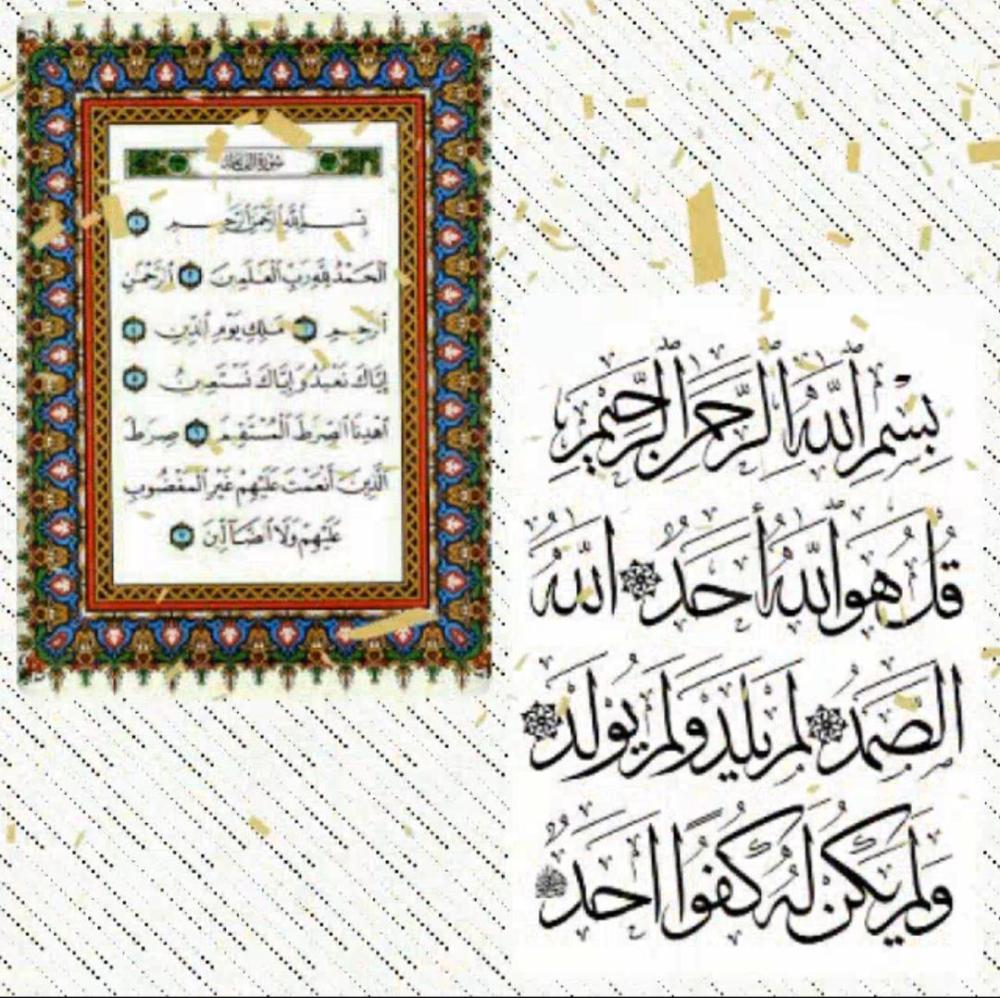 سُورَةُ الفَاتِحَةِ
بِسْمِ ٱللَّهِ ٱلرَّحْمَٰنِ ٱلرَّحِيمِ ١
ٱلْحَمْدُ لِلَّهِ رَبِّ ٱلْعَٰلَمِينَ ٢ ٱلرَّحْمَٰنِ
ٱلرَّحِيمِ ٣ مَٰلِكِ يَوْمِ ٱلدِّينِ ٤
إِيَّاكَ نَعْبُدُ وَإِيَّاكَ نَسْتَعِينُ ٥
ٱهْدِنَا ٱلصِّرَٰطَ ٱلْمُسْتَقِيمَ ٦ صِرَٰطَ
ٱلَّذِينَ أَنْعَمْتَ عَلَيْهِمْ غَيْرِ ٱلْمَغْضُوبِ
عَلَيْهِمْ وَلَا ٱلضَّآلِّينَ ٧
بِسْمِ ٱللَّهِ ٱلرَّحْمَٰنِ ٱلرَّحِيمِ
قُلْ هُوَ ٱللَّهُ أَحَدٌ ۞ اللَّهُ
الصَّمَدُ ۞ لَمْ يَلِدْ وَلَمْ يُولَدْ ۞
وَلَمْ يَكُنْ لَهُ كُفُوًا أَحَدٌ